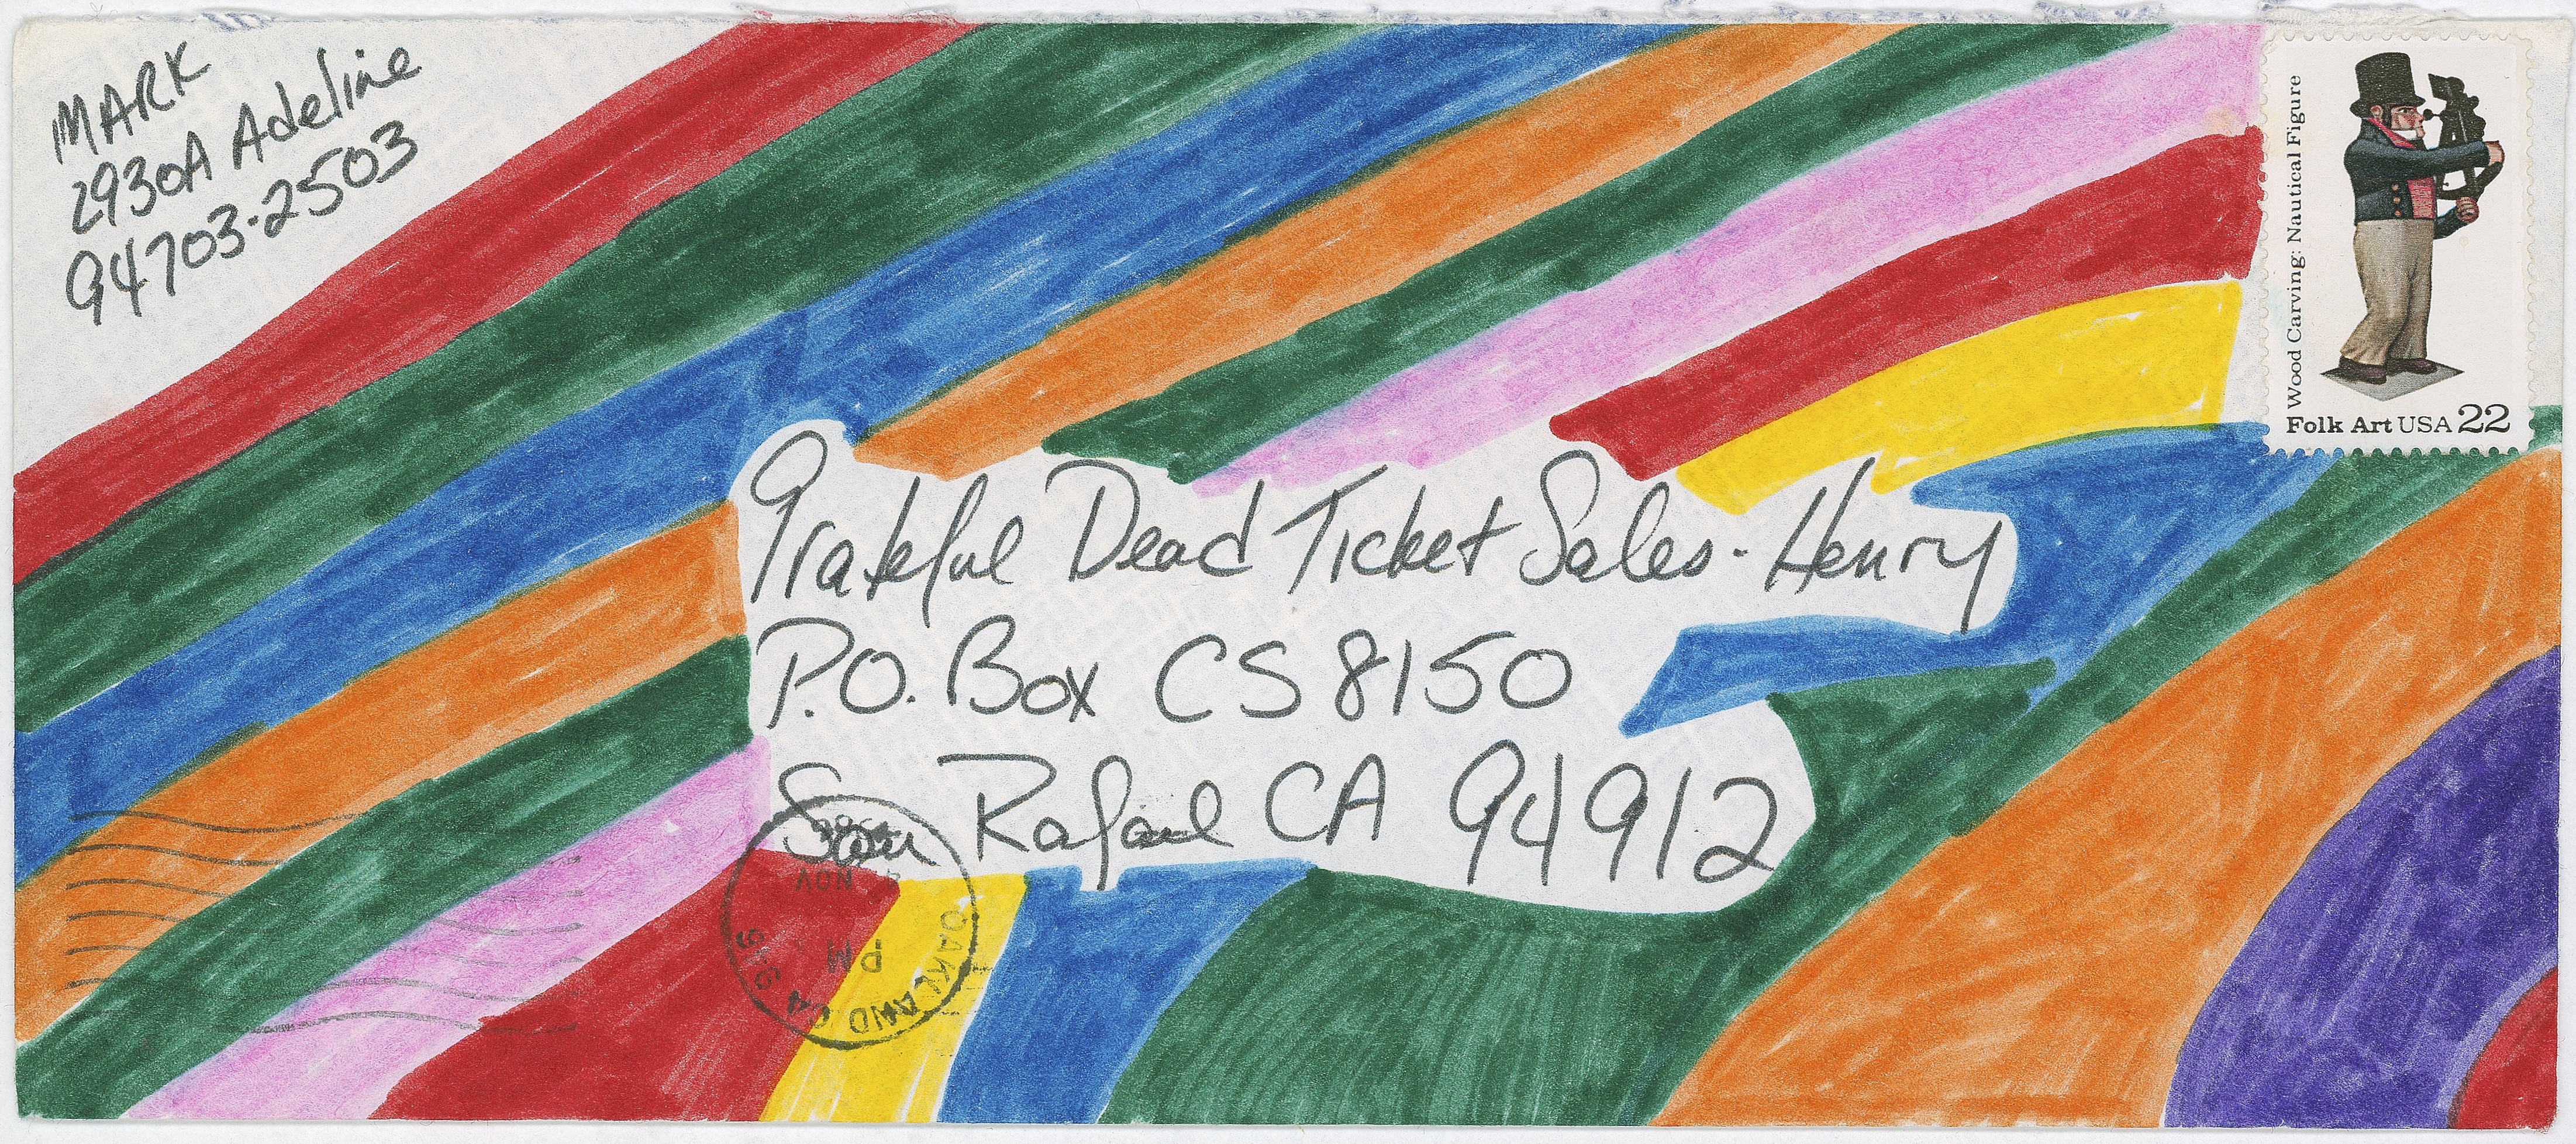 MARK
2930A Adeline
94703-2503
Wood Carving: Nautical Figure
Folk Art USA 22
Grateful Dead Ticket Sales - Henry
P.O. Box CS 8150
San Rafael CA 94912
NOV
PM
OAKLAND CA 946